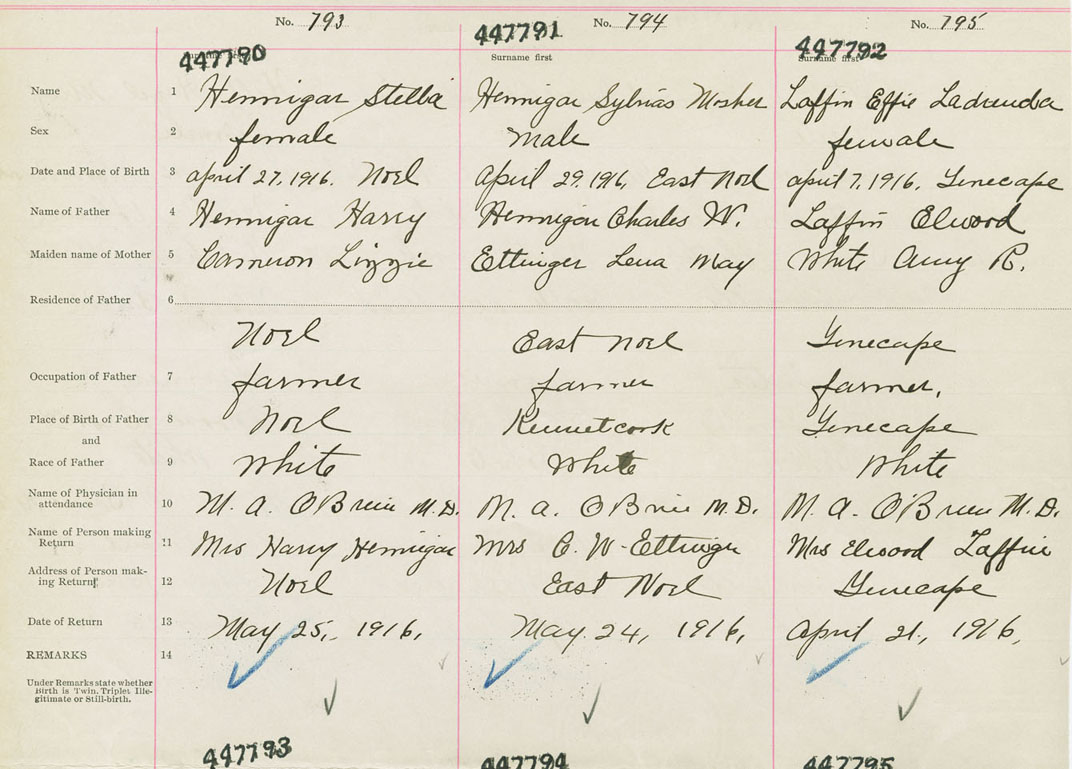 No. 793 No. 794 No. 795
447790 447791 447792
Surname first Surname first
Name 1 Hennigar Stella Hennigar Sylvias Mosher Laffin Effie Ladrenda
Sex 2 female male female
Date and Place of Birth 3 april 27, 1916. Noel April 29. 1916. East Noel april 7, 1916. Tenecape
Name of Father 4 Hennigar Harry Hennigar Charles W. Laffin Elwood
Maiden name of Mother 5 Cameron Lizzie Ettinger Lena May White Amy R.
Residence of Father 6
Noel East Noel Tenecape
Occupation of Father 7 farmer farmer farmer,
Place of Birth of Father 8 Noel Kennetcook Tenecape
and
Race of Father 9 White White White
Name of Physician in attendance 10 M. A. O'Brien M.D. M. A. O'Brien M.D. M. A. O'Brien M.D.
Name of Person making Return 11 Mrs Harry Hennigar Mrs C. W. Ettinger Mrs Elwood Laffin
Address of Person mak-
ing Return 12 Noel East Noel Tenecape
Date of Return 13 May 25, 1916, May 24, 1916, April 21., 1916,
REMARKS 14
Under Remarks state whether
Birth is Twin, Triplet Ille-
gitimate or Still-birth.
447793 447794 447795